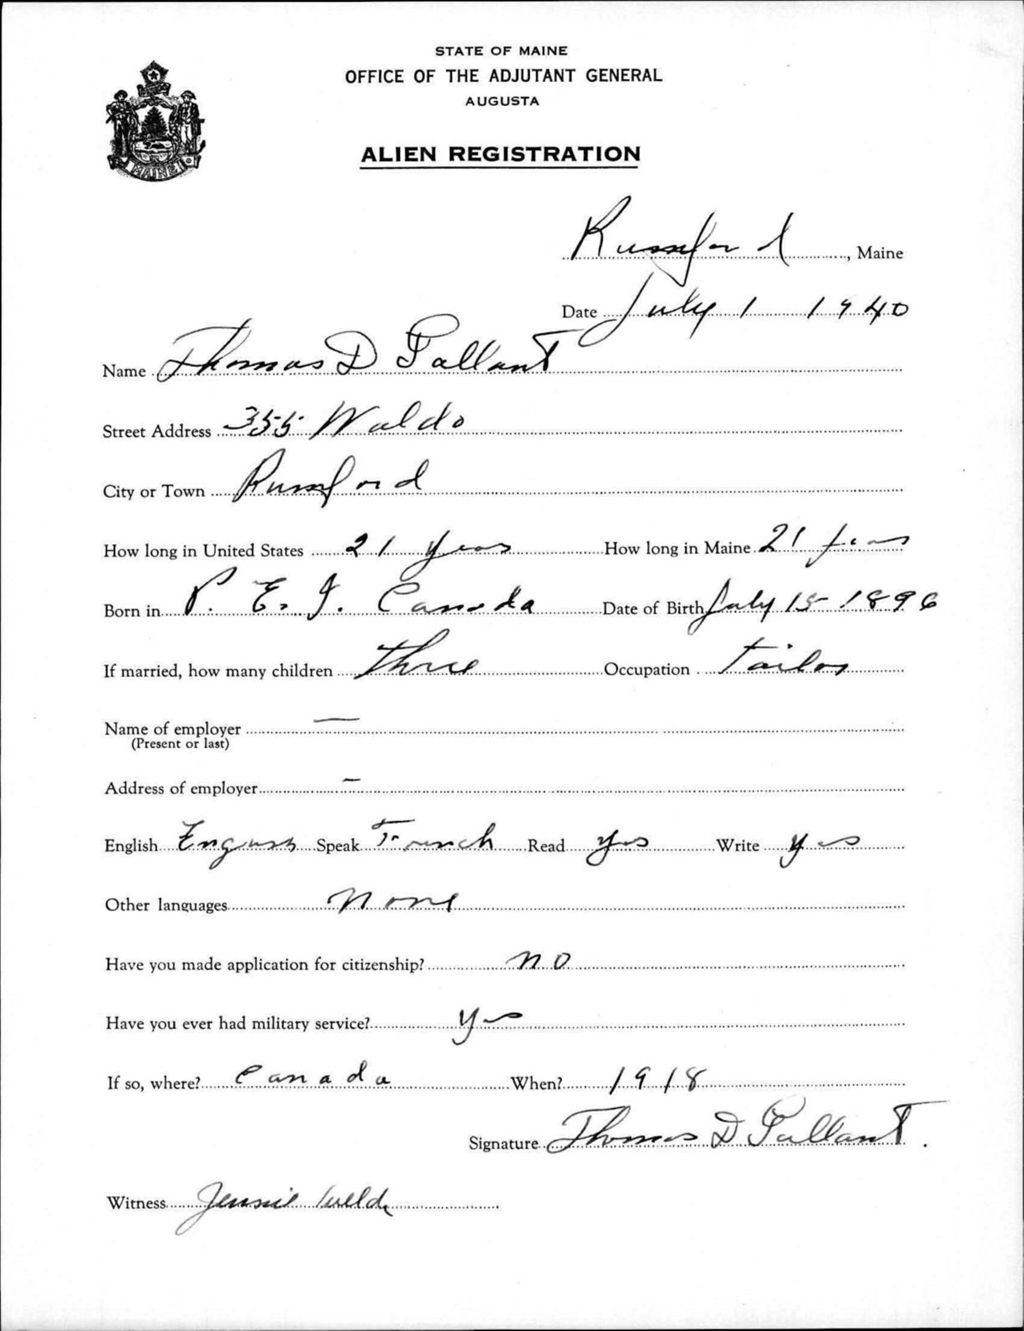 STATE OF MAINE
OFFICE OF THE ADJUTANT GENERAL
AUGUSTA
MAINE
ALIEN REGISTRATION
Rumford, Maine
Date July 1 1940
Name Thomas D Gallant
Street Address 355 Waldo
City or Town Rumford
How long in United States 21 years How long in Maine 21 years
Born in P. E. I. Canada Date of Birth July 15 1896
If married, how many children three Occupation tailor
Name of employer —
(Present or last)
Address of employer —
English English Speak French Read yes Write yes
Other languages none
Have you made application for citizenship? no
Have you ever had military service? yes
If so, where? Canada When? 1918
Signature Thomas D Gallant.
Witness Jennie Weld